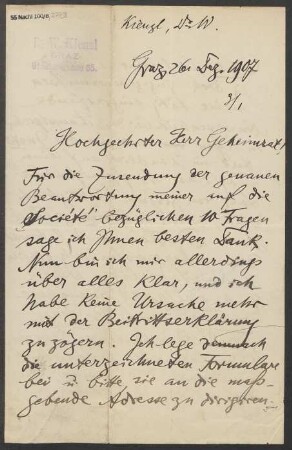 Kienzl, Dr W.
Graz, 26. Dez. 1907
3/1
Hochgeehrter Herr Geheimrat!
Für die Zusendung der genauen
Beantwortung meiner auf die
„Société“ bezüglichen 10 Fragen
sage ich Ihnen besten Dank.
Nun bin ich mir allerdings
über alles klar, und ich
habe keine Ursache mehr
mit der Beitrittserklärung
zu zögern. Ich lege demnach
die unterzeichneten Formulare
bei u. bitte, sie an die maß-
gebende Adresse zu dirigiren.